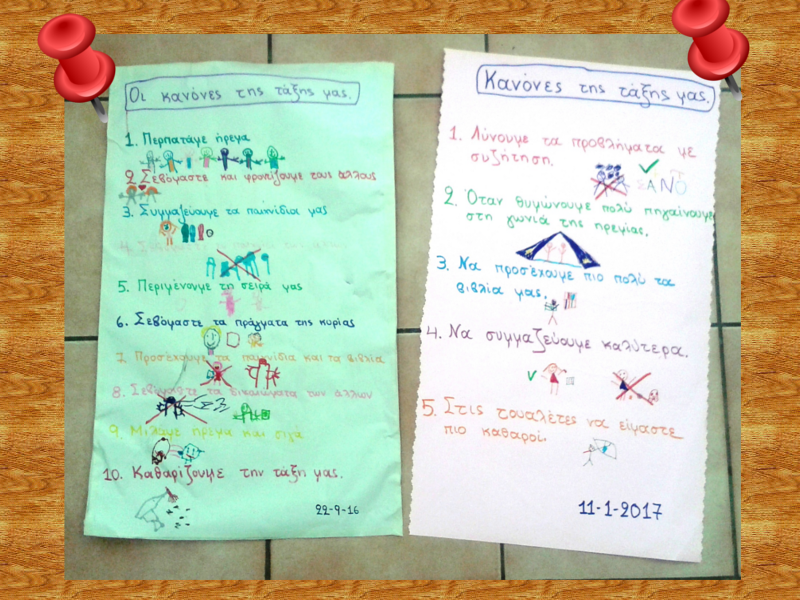 Οι κανόνες της τάξης μας.
1. Περπατάμε ήρεμα
2. Σεβόμαστε και φροντίζουμε τους άλλους
3. Συμμαζεύουμε τα παιχνίδια μας
4.
5. Περιμένουμε τη σειρά μας
6. Σεβόμαστε τα πράγματα της κυρίας
7. Προσέχουμε τα παιχνίδια και τα βιβλία
8. Σεβόμαστε τα δικαιώματα των άλλων
9. Μιλάμε ήρεμα και σιγά
10. Καθαρίζουμε την τάξη μας.
22-9-16
Κανόνες της τάξης μας.
1. Λύνουμε τα προβλήματα με
συζήτηση.
2. Όταν θυμώνουμε πολύ πηγαίνουμε
στη γωνιά της ηρεμίας.
3. Να προσέχουμε πιο πολύ τα
βιβλία μας.
4. Να συμμαζεύουμε καλύτερα.
5. Στις τουαλέτες να είμαστε
πιο καθαροί.
11-1-2017